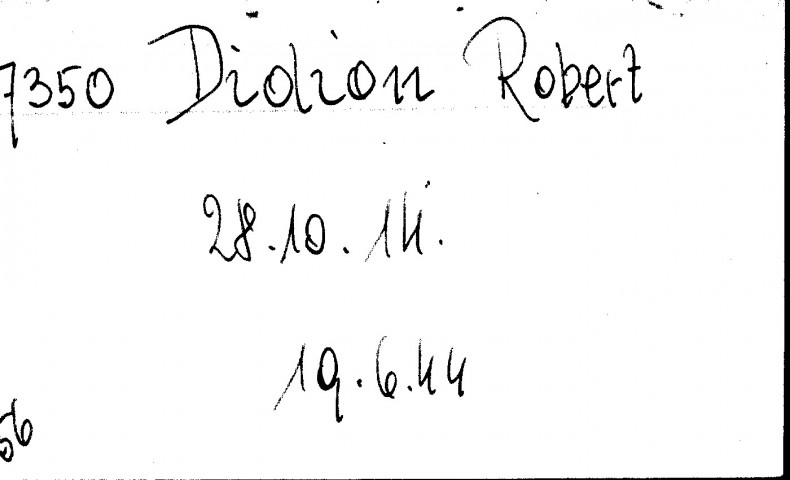 7350 Didion Robert
28.10.14.
19.6.44
56